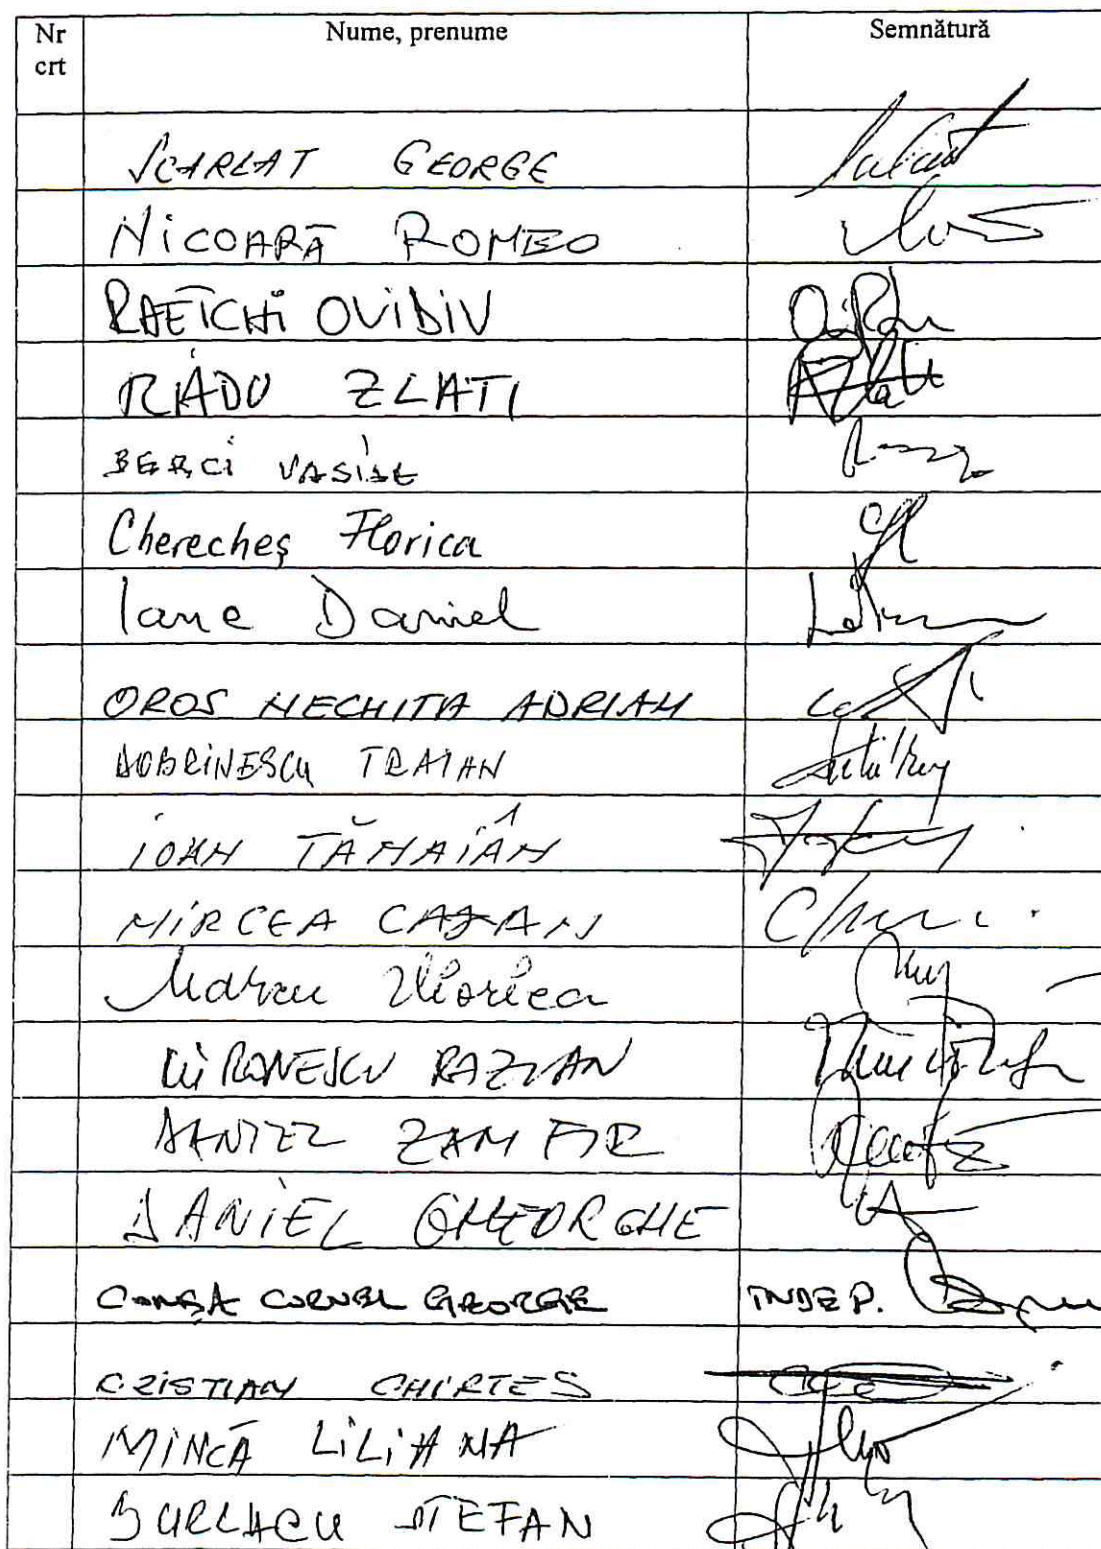 Nr crt Nume, prenume Semnătură
SCARLAT GEORGE
NICOARĂ ROMEO
RAEȚCHI OVIDIU
RADU ZLATI
BERCI VASILE
Cherecheș Florica
Iane Daniel
OROS NECHITA ADRIAN
DOBRINESCU TRAIAN
IOAN TĂMÂIAN
MIRCEA CAZAN
Marcu Viorica
MIRONESCU RAZVAN
DANIEL ZAMFIR
DANIEL GHEORGHE
COMȘA CORNEL GEORGE INDEP.
CRISTIAN CHIRTEȘ
MINCĂ LILIANA
BURLACU ȘTEFAN